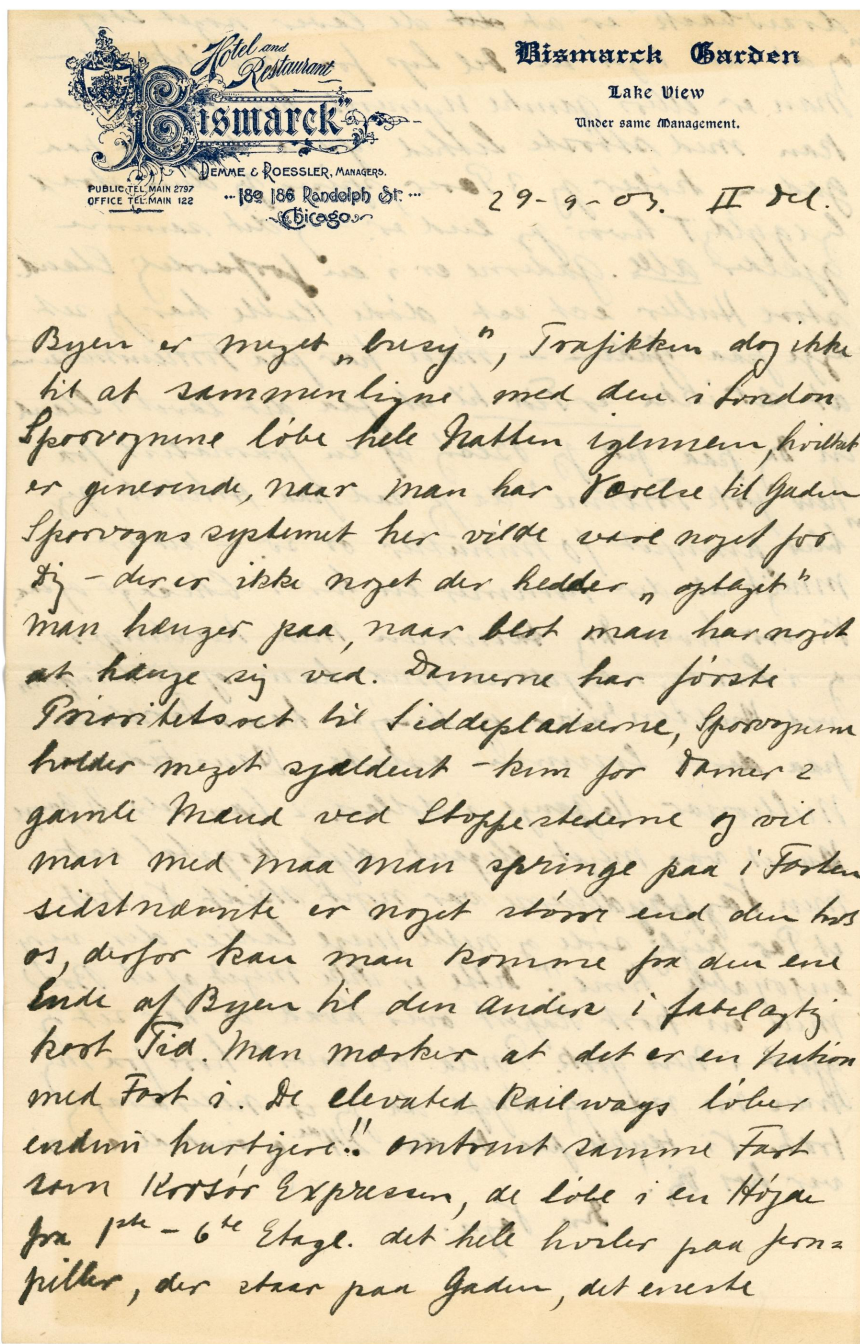 Hotel and
Restaurant
"Bismarck"
DEMME & ROESSLER, MANAGERS.
PUBLIC TEL. MAIN 2797
OFFICE TEL. MAIN 122
180 186 Randolph St.
Chicago.
Bismarck Garden
Lake View
Under same Management.
29-9-03. II Del.
Byen er meget „busy", Trafikken dog ikke
til at sammenligne med den i London
Sporvognene løbe hele Natten igennem, hvilket
er generende, naar man har Værelse til Gaden
Sporvognssystemet her vilde være noget for
Dig - der er ikke noget der hedder „optaget"
man hænger paa, naar blot man har noget
at hænge sig ved. Damerne har første
Prioritetsret til Siddepladserne, Sporvognene
holder meget sjældent - kun for Damer &
gamle Mænd ved Stoppestederne og vil
man med maa man springe paa i Farten
sidstnævnte er noget større end den hos
os, derfor kan man komme fra den ene
Ende af Byen til den anden i fabelagtig
kort Tid. Man mærker at det er en Nation
med Fart i. De elevated Railways løber
endnu hurtigere!! omtrent samme Fart
som Korsør Expressen, de løbe i en Højde
fra 1ste - 6te Etage. det hele hviler paa Jern=
piller, der staar paa Gaden, det eneste